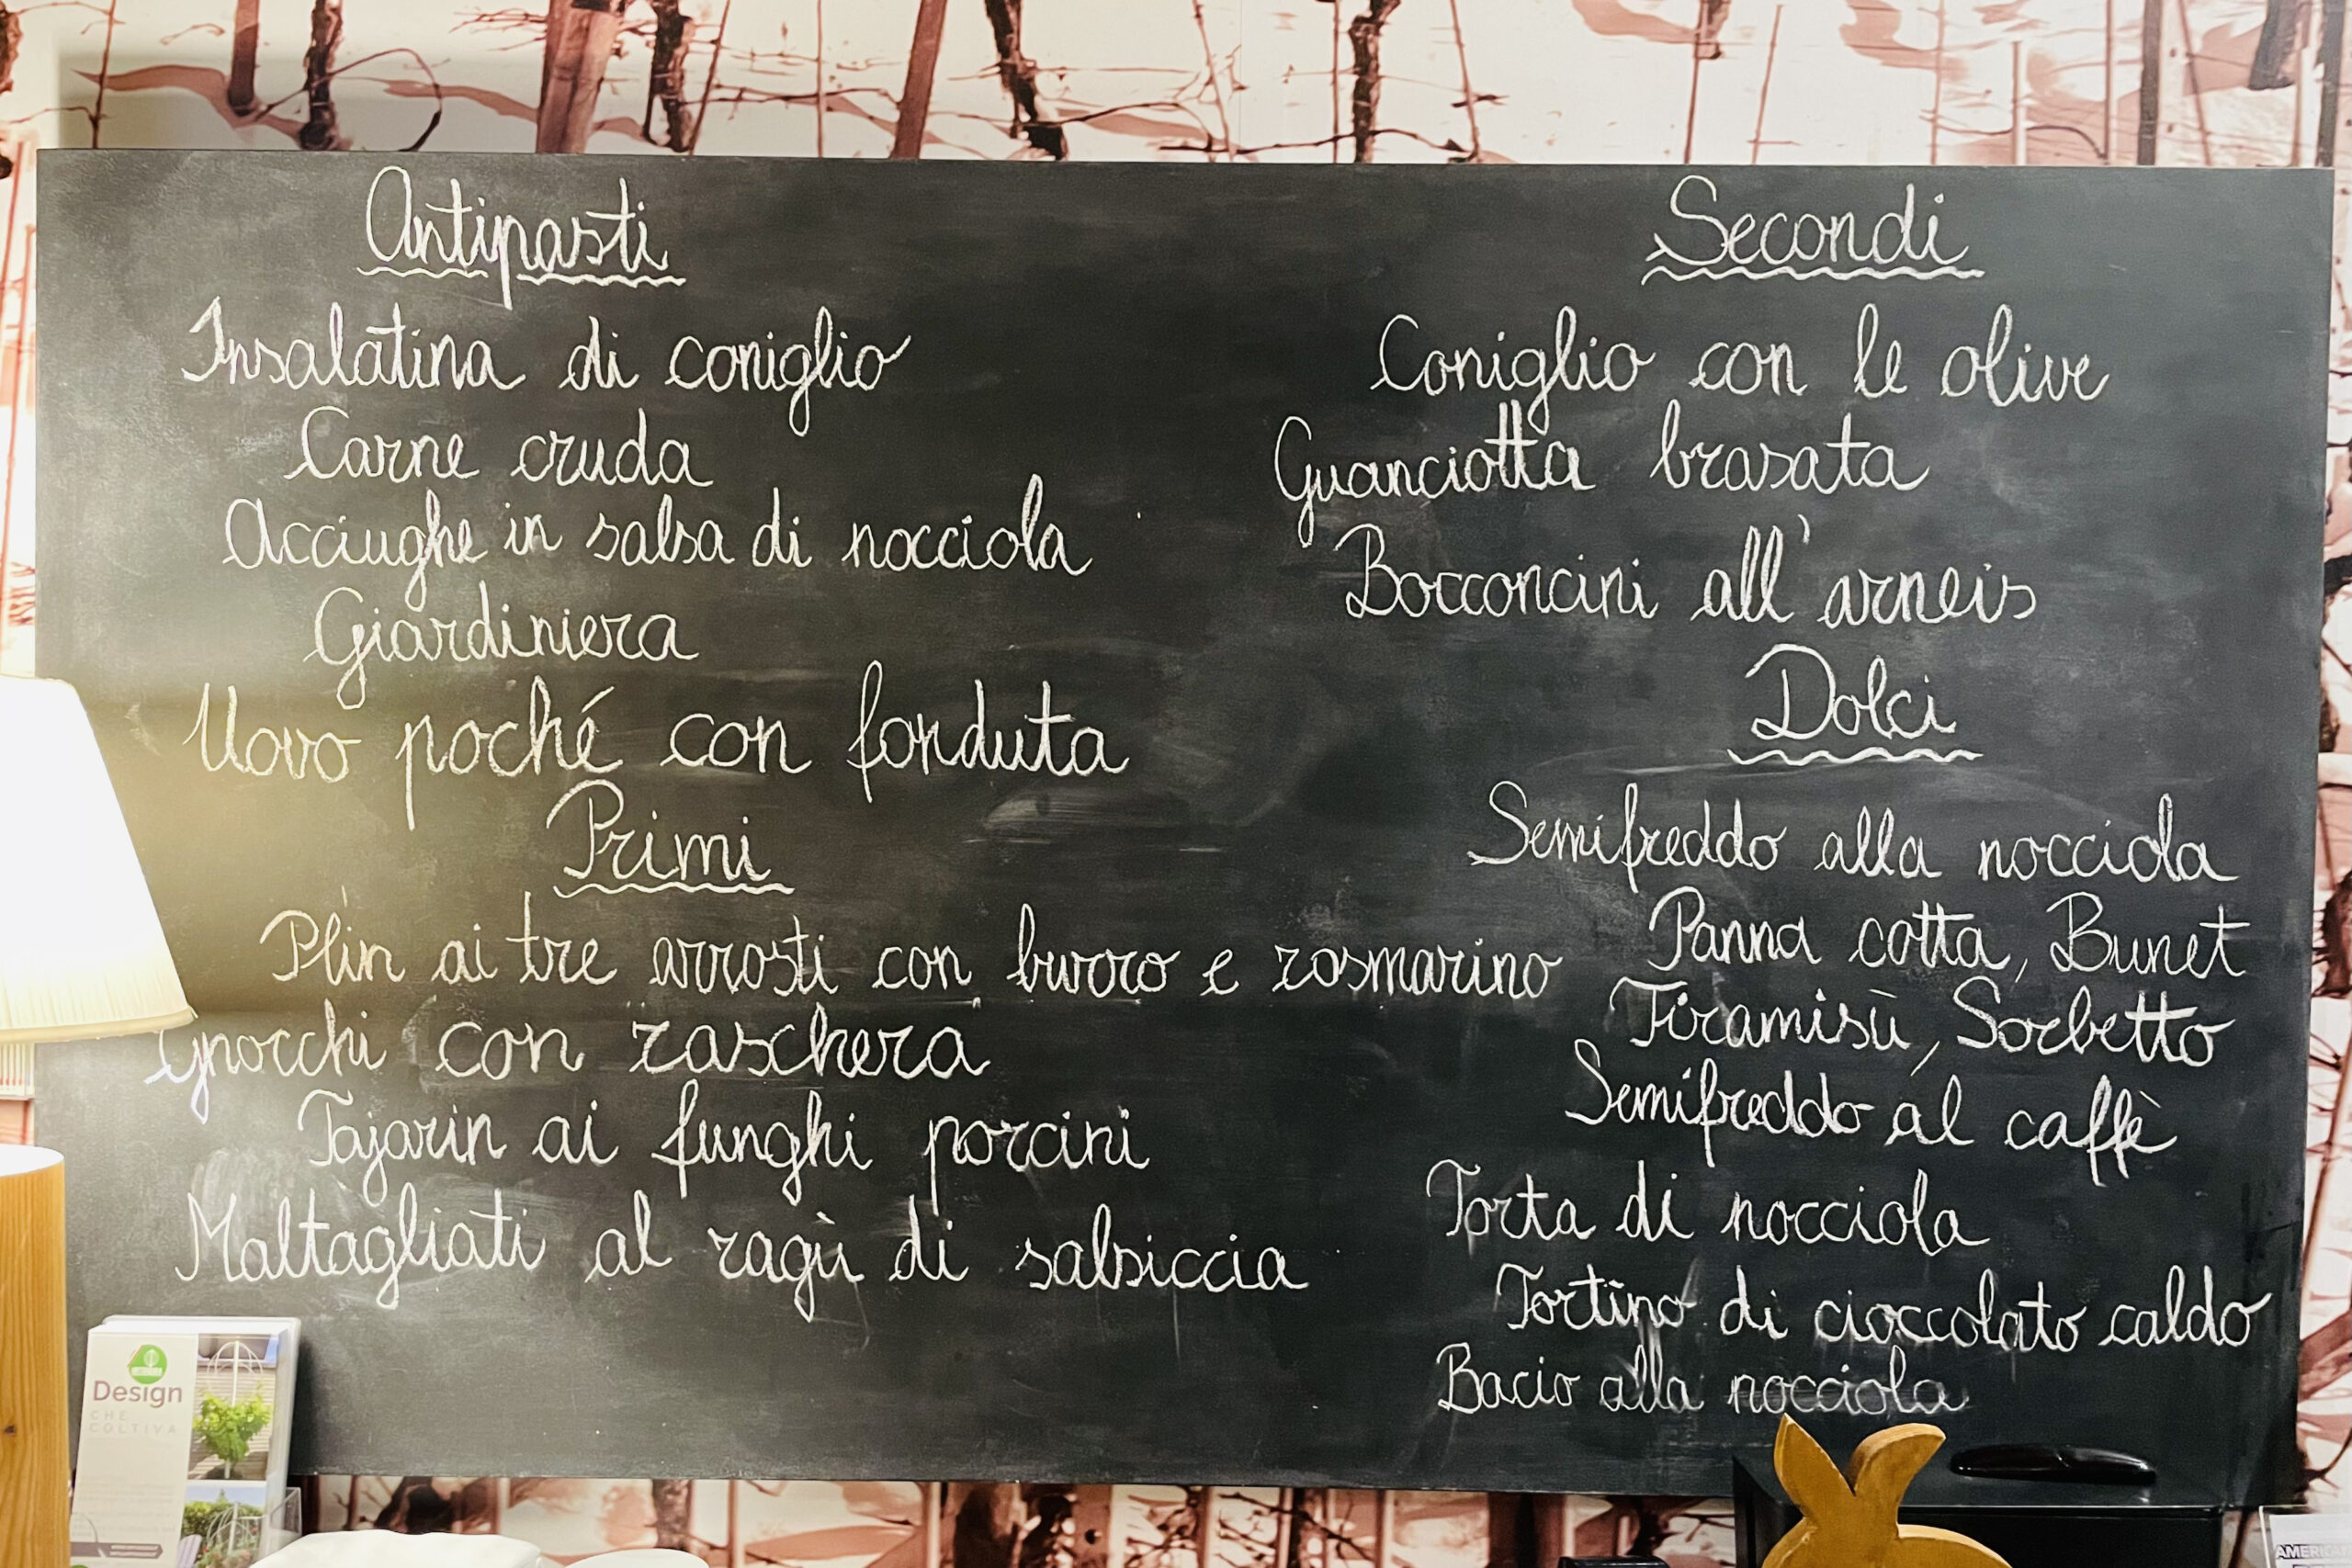 Antipasti
Insalatina di coniglio
Carne cruda
Acciughe in salsa di nocciola
Giardiniera
Uovo poché con fonduta
Primi
Plin ai tre arrosti con burro e rosmarino
Gnocchi con "raschera"
Tajarin ai funghi porcini
Maltagliati al ragù di salsiccia
Secondi
Coniglio con le olive
Guanciotta brasata
Bocconcini all'arneis
Dolci
Semifreddo alla nocciola
Panna cotta, Bunet
Tiramisù, Sorbetto
Semifreddo al caffè
Torta di nocciola
Tortino di cioccolato caldo
Bacio alla nocciola
Design
CHE
COLTIVA